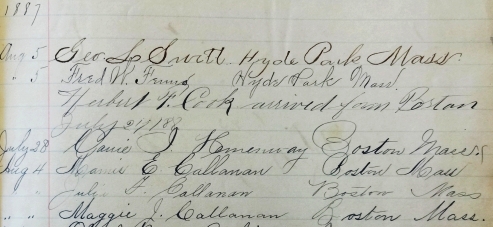 1887
Aug 5 Geo. L. Swett Hyde Park Mass.
" 5 Fred W. Hyde Park Mass.
Herbert F. Cook arrived from Boston
July 27 188
July 28 J. Hemenway Boston Mass
Aug 4 Mamie E Callanan Boston Mass
" " Julia F. Callanan Boston Mass
" " Maggie J. Callanan Boston Mass.